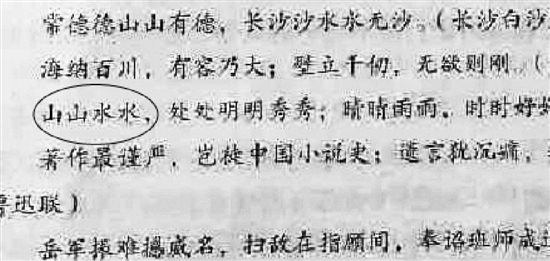 常德德山山有德，长沙沙水水无沙。（长沙白沙
海纳百川，有容乃大；壁立千仞，无欲则刚。（
山山水水，处处明明秀秀；晴晴雨雨，时时好好
著作最谨严，岂徒中国小说史；遗言犹沉痛，
鲁迅联）
岳军振难撼威名，扫敌在指顾间，奉诏班师成